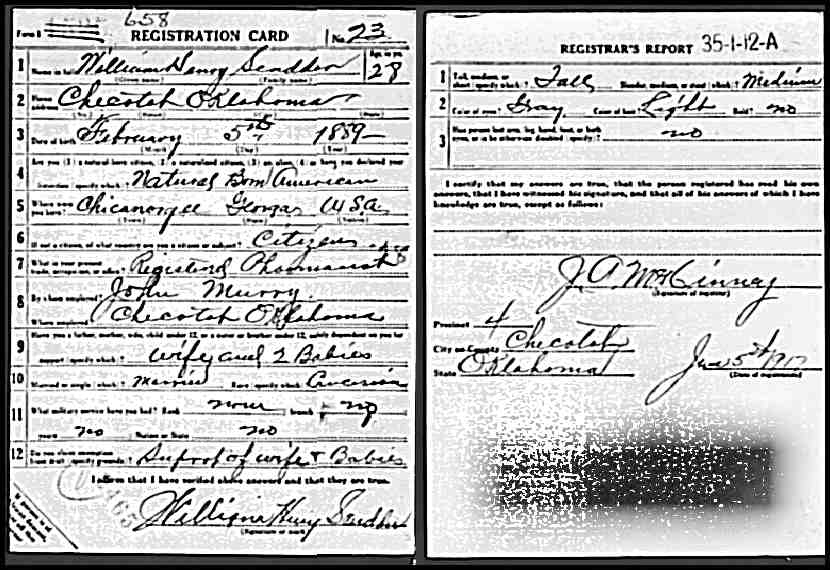 658
REGISTRATION CARD No. 23
1 William Henry Age, in yrs. 28
(Given name) (Family name)
2 Home address Checotah Oklahoma
3 Date of birth February 5th 1889
(Month) (Day) (Year)
4 Are you (1) a natural-born citizen, (2) a naturalized citizen, (3) an alien, (4) or have you declared your
intention (specify which)? Natural Born American
5 Where were you born? Georga U.S.A.
(Town) (State) (Nation)
6 If not a citizen, of what country are you a citizen or subject? Citizen
7 What is your present trade, occupation, or office? Registered Pharmacist
8 By whom employed? John Murry
Where employed? Checotah Oklahoma
9 Have you a father, mother, wife, child under 12, or a sister or brother under 12, solely dependent on you for
support (specify which)? Wife and 2 Babies
10 Married or single (which)? Married Race (specify which)?
11 What military service have you had? Rank none branch no
years no Nation or State no
12 Do you claim exemption from draft (specify grounds)? of wife & Babies
I affirm that I have verified above answers and that they are true.
William Henry
(Signature or mark)
REGISTRAR'S REPORT 35-1-12-A
1 Tall, medium, or short (specify which)? Tall Slender, medium, or stout (which)? Medium
2 Color of eyes? Gray Color of hair? Light Bald? no
3 Has person lost arm, leg, hand, foot, or both
eyes, or is he otherwise disabled (specify)? no
I certify that my answers are true, that the person registered has read his own
answers, that I have witnessed his signature, and that all of his answers of which I have
knowledge are true, except as follows:
J. A. McKinney
(Signature of registrar)
Precinct 4
City or County Checotah
State Oklahoma
June 5th 1917
(Date of registration)